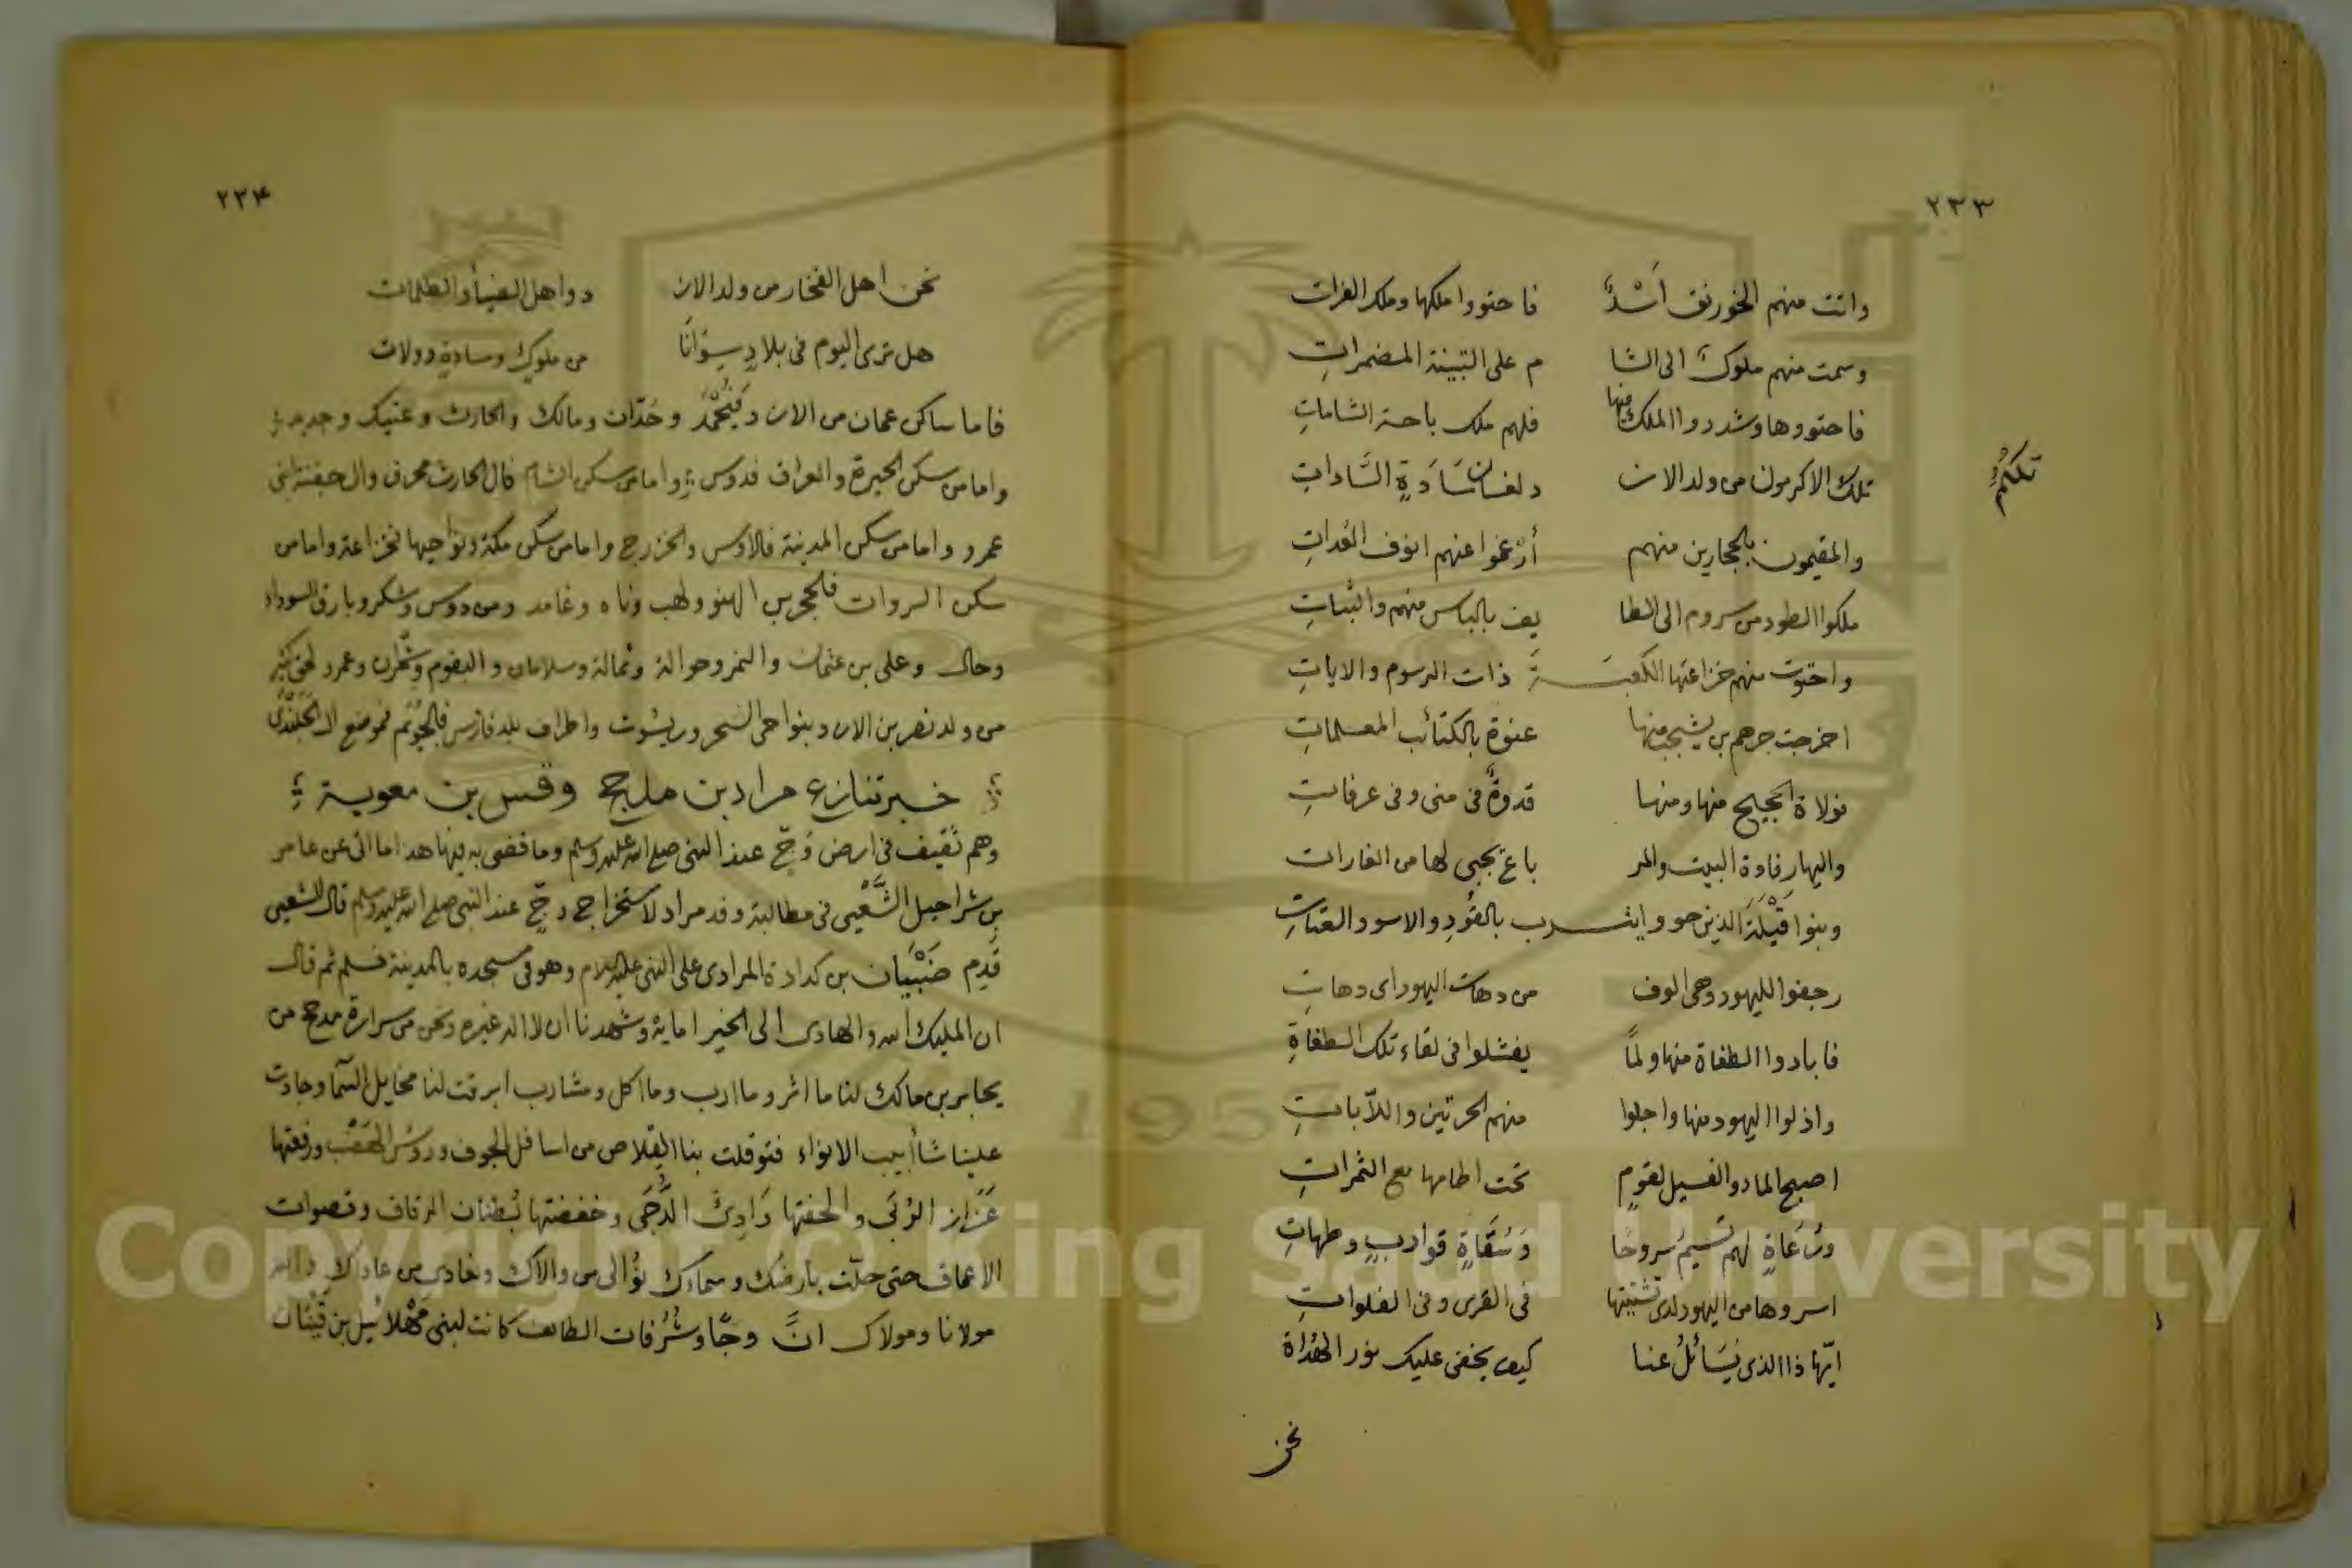 ٢٣٣
واتت منهم الخورنق أسْدٌ فاحتووا ملكها وملك الفرات
وسمت منهم ملوك الى الشا م على التبينة المضمرات
فاحتووها وشددوا الملك منها فلهم ملك باحة الشامات
تلك الاكرمون من ولد الازد لغسان سَادَةٍ السَّاداتِ
تلكمُ
والمقيمون بالحجازين منهم أرْغموا عنهم انوف العُداتِ
ملكوا الطود من سروم الى الطا يف بالباس منهم والثباتِ
واحتوت منهم خزاعتها الكعبـــةَ ذات الرسوم والاياتِ
اخرجت جرهم بن يشجب منها عنوة بالكتائب المعلماتِ
فولاة الحجيج منها ومنها قدوةٌ فى منى وفى عرفاتِ
واليها رفادة البيت والمر باع يجبى لها من الغارات
وبنوا قَيْلَة الذين حووا يثـــرب بالقُودِ والاسود العتاتِ
رجفوا لليهود وهى الوف من دهات اليهود اى دهاتِ
فابادوا الطغاة منها ولمَّا يفشلوا فى لقاء تلك الطغاةِ
واذلوا اليهود منها واجلوا منهم الحرتين واللاّباتِ
اصبح الما دوالفسيل لقومٍ تحت اطامها مع الثمراتِ
ورُعَاةٍ لهم تسيم سروحًا وَسُقَاةٍ قواربٍ وطهاتِ
اسروها من اليهود لدى تشتيتها فى القرى وفى الفلواتِ
ايّها ذا الذى يُسَائلُ عنا كيف يخفى عليك نور الهُداة
نحن
٢٣٤
نحن اهل الفخار من ولد الازد واهل الضيأ والظلمات
هل ترى اليوم فى بلادٍ سِوَانَا من ملوكٍ وسادةٍ وولات
فاما ساكن عمان من الازد فيُحْمَدُ وحُدّان ومالك والحارث وعتيك وجديد
واما من سكن الحيرة والعراق فدوس واما من سكن الشام فال الحارث محرق وال جفنة ابنى
عمرو واما من سكن المدينة فالاوس والخزرج واما من سكن مكة ونواحيها فخزاعة واما من
سكن السروات فالحجر بن الهنو ولهب وناه وغامد ومن دوس وشكر وبارق السوداء
وحاك وعلى بن عثمان والنمر وحوالة وثمالة وسلامان والبقوم وشمران وعمرو لحق كثير
من ولد نصر بن الازد وبنواحى الشحر وريسُوت واطراف بلد فارس فالجُويَم فموضع ال الجَلَنْدَى
خبر تنازع مراد بن مذحج وقسى بن معوية
وهم ثقيف فى ارض وَجّ عند النبى صلى الله عليه وسلم وما قضى به فيها هذا ما اتى عن عامر
بن شراحيل الشَّعْبى فى مطالبة وفد مراد لاستخراج وجّ عند النبى صلى الله عليه وسلم قال الشعبى
قَدِم ضَبْيَان بن كدادة المرادى على النبى عليه السلام وهو فى مسجده بالمدينة فسلم ثم قال
ان المليك الله والهادى الى الخير امايه وشهدنا ان لا اله غيره ونحن من سرارة مذحج من
يحابر بن مالك لنا ماثر ومارب وما كل ومشارب ابرقت لنا مخايل السما وجادت
علينا شأبيب الانواء فتوقلت بنا القلاص من اسافل الجوف وروس الهَضْب ورفعتها
عَزَاز الرُبَى والحفتها دَادِئ الدُّجَى وخفضتها بُطنان الرقاق وقصوات
الاعماق حتى حلّت بارضك وسماءك نُوالى من والاك ونعادى من عاداك والله
مولانا ومولاك انَّ وجّا وشُرُفات الطائف كانت لبنى مَهْلائيل بن قَيْنَان